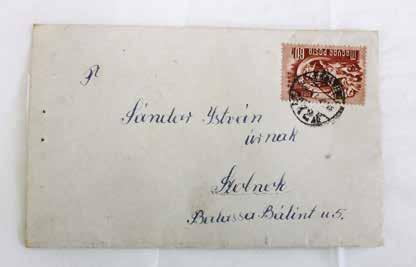 MAGYAR POSTA
Sándor István
úrnak
Szolnok
Balassa Bálint u 5.